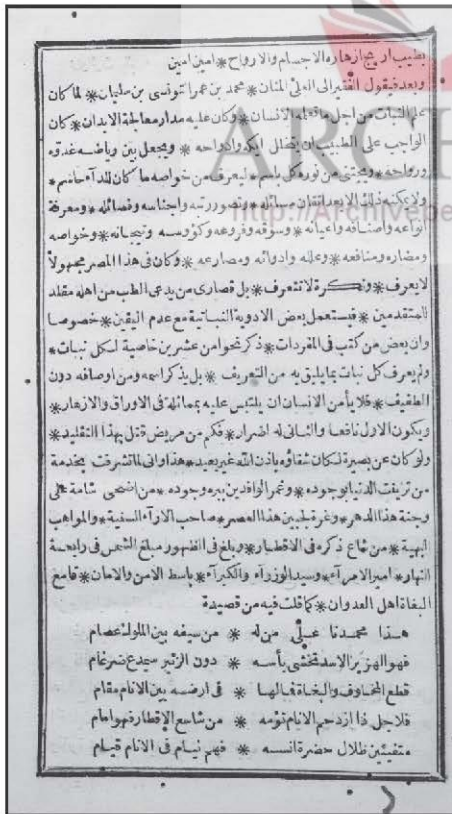 بطيب اريج ازهاره الاجسام والارواح * امين امين
وبعد فيقول الفقير الى العلي المنان * محمد بن عمر التونسي بن سليمان * لما كان
علم النبات من اجل ما تعلمه الانسان * وكان عليه مدار معالجة الابدان * كان
الواجب على الطبيب ان يتخلل ايكه وادواحه * ويجعل بين رياضه غدوه
ورواحه * ويجتني من نوره كل باسم * ليعرف من خواصه ما كان للداء حاسم *
ولا يمكنه ذلك الا بعد اتقان مسائله * وتصور رتبه واجناسه وفصائله * ومعرفة
انواعه واصنافه واعيانه * وسوقه وفروعه وكؤوسه وتيجانه * وخواصه
ومضاره ومنافعه * وعلله وادوائه ومصارعه * وكان في هذا المصر مجهولا
لا يعرف * ونكرة لا تتعرف * بل قصارى من يدعى الطب من اهله مقلد
للمتقدمين * فيستعمل بعض الادوية النباتية مع عدم اليقين * خصوصا
وان بعض من كتب في المفردات * ذكر نحوا من عشرين خاصية لكل نبات *
ولم يعرف كل نبات بما يليق به من التعريف * بل يذكر اسمه ومن اوصافه دون
الطفيف * فلا يأمن الانسان ان يلتبس عليه بمماثله في الاوراق والازهار *
ويكون الاول نافعا والثاني له اضرار * فكم من مريض قتل بهذا التقليد *
ولو كان عن بصيرة لكان شفاؤه باذن الله غير بعيد * هذا واني لما تشرفت بخدمة
من تزينت الدنيا بوجوده * وغمر الوافدين ببره وجوده * من اضحى شامة على
وجنة هذا الدهر * وغرة لجبين هذا العصر * صاحب الآراء السنية * والمواهب
البهية * من شاع ذكره في الاقطار * وبلغ في الظهور مبلغ الشمس في رابعة
النهار * امير الامراء * وسيد الوزراء والكبراء * باسط الامن والامان * قامع
البغاة اهل العدوان * كما قلت فيه من قصيدة
هذا محمدنا علي من له * من سيفه بين الملوك عصام
فهو الهزبر الاسد تخشى بأسه * دون الزئير سميدع ضرغام
قطع المخاوف والبغاة فما لها * في ارضه بين الانام مقام
فلاجل ذا ازدحم الانام نؤمه * من شاسع الاقطار فهو امام
متفيئين ظلال حضرة انسه * فهم نيام في الانام قيام
ARCH
http://Archivebe